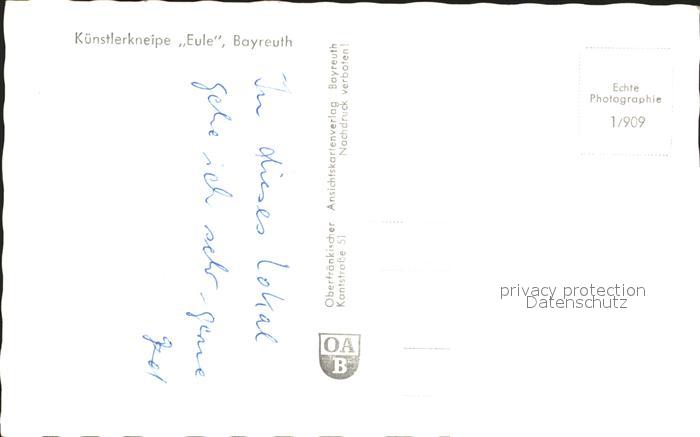 Künstlerkneipe „Eule“, Bayreuth
In dieses Lokal
gehe ich sehr gerne
Oberfränkischer Ansichtskartenverlag Bayreuth
Kantstraße 51 Nachdruck verboten!
OA
B
Echte
Photographie
1/909
privacy protection
Datenschutz